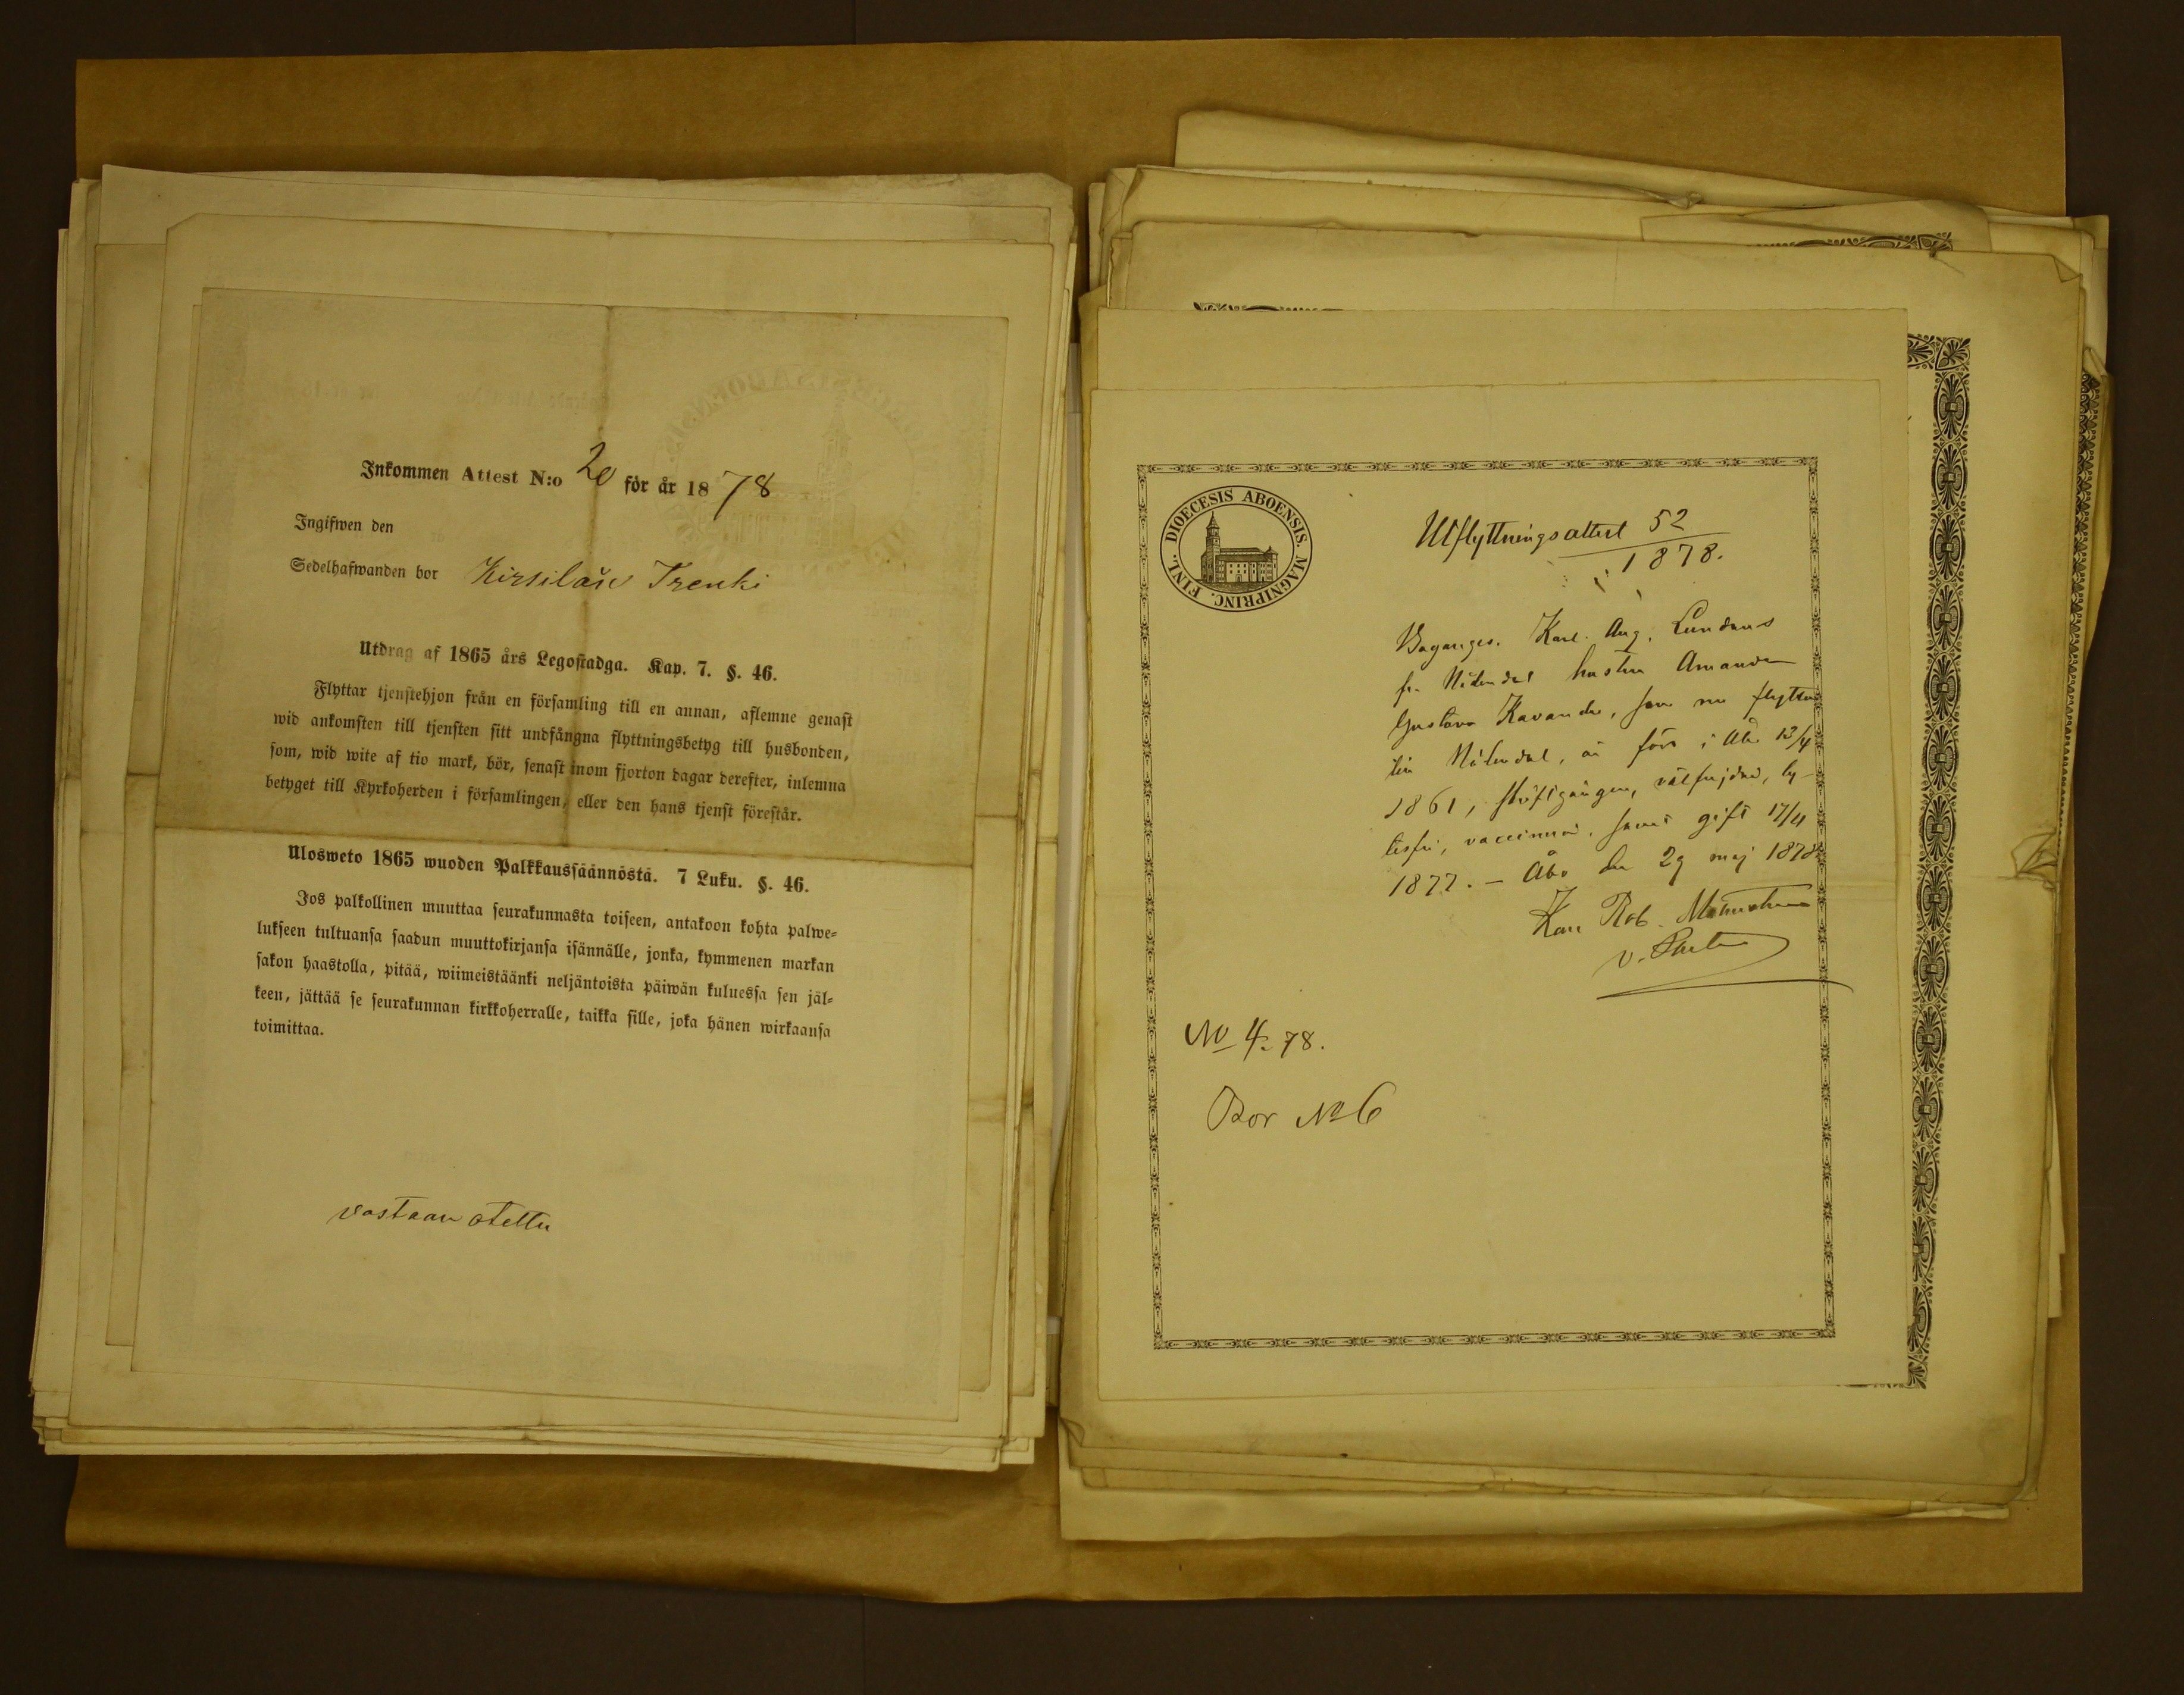 Inkommen Attest N:o 20 för år 1878
Ingifwen den
Sedelhafwanden bor Kirsilän Trenki
Utdrag af 1865 års Legostadga. Kap. 7. §. 46.
Flyttar tjenstehjon från en församling till en annan, aflemne genast
wid ankomsten till tjensten sitt undfångna flyttningsbetyg till husbonden,
som, wid wite af tio mark, bör, senast inom fjorton dagar derefter, inlemna
betyget till Kyrkoherden i församlingen, eller den hans tjenst förestår.
Ulosweto 1865 wuoden Palkkaussäännöstä. 7 Luku. §. 46.
Jos palkollinen muuttaa seurakunnasta toiseen, antakoon kohta palwe=
lukseen tultuansa saadun muuttokirjansa isännälle, jonka, kymmenen markan
sakon haastolla, pitää, wiimeistäänki neljäntoista päiwän kuluessa sen jäl=
keen, jättää se seurakunnan kirkkoherralle, taikka sille, joka hänen wirkaansa
toimittaa.
vastaan otettu
FINL. DIOECESIS ABOENSIS. MAGNIPRINC.
Utflyttningsattest 52
1878.
Karl. Aug. Lundens
fr. Nådendal hustru Amanda
Gustava Kavander, som nu flyttar
till Nådendal, är född i Åbo 13/4
1861, skriftgången, välfrejdad, ly-
tesfri, vaccinerad, samt gift 17/4
1877. – Åbo den 29 maj 1878
Karl Rob.
v. Pastor
No 4. 78.
Bor No 6